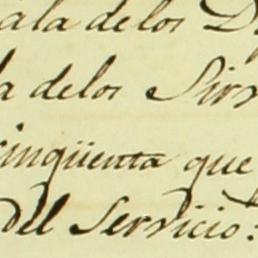 ala de los D
a de los Sirv
inqüenta que
del Servicio: